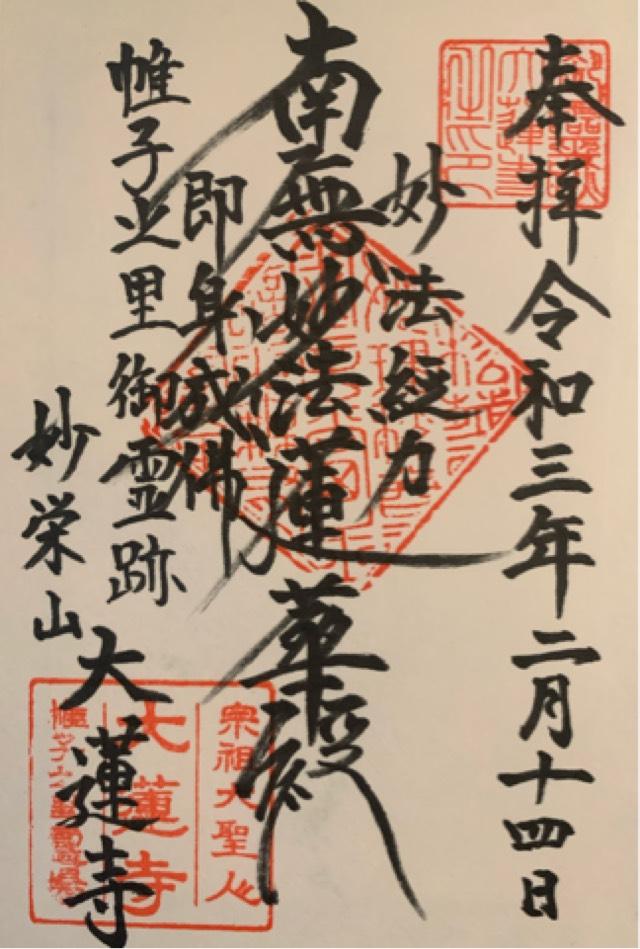 奉拝 令和三年二月十四日
妙法經力
南無妙法蓮華經
即身成佛
帷子之里御霊跡
妙栄山
大蓮寺
宗祖大聖人
大蓮寺